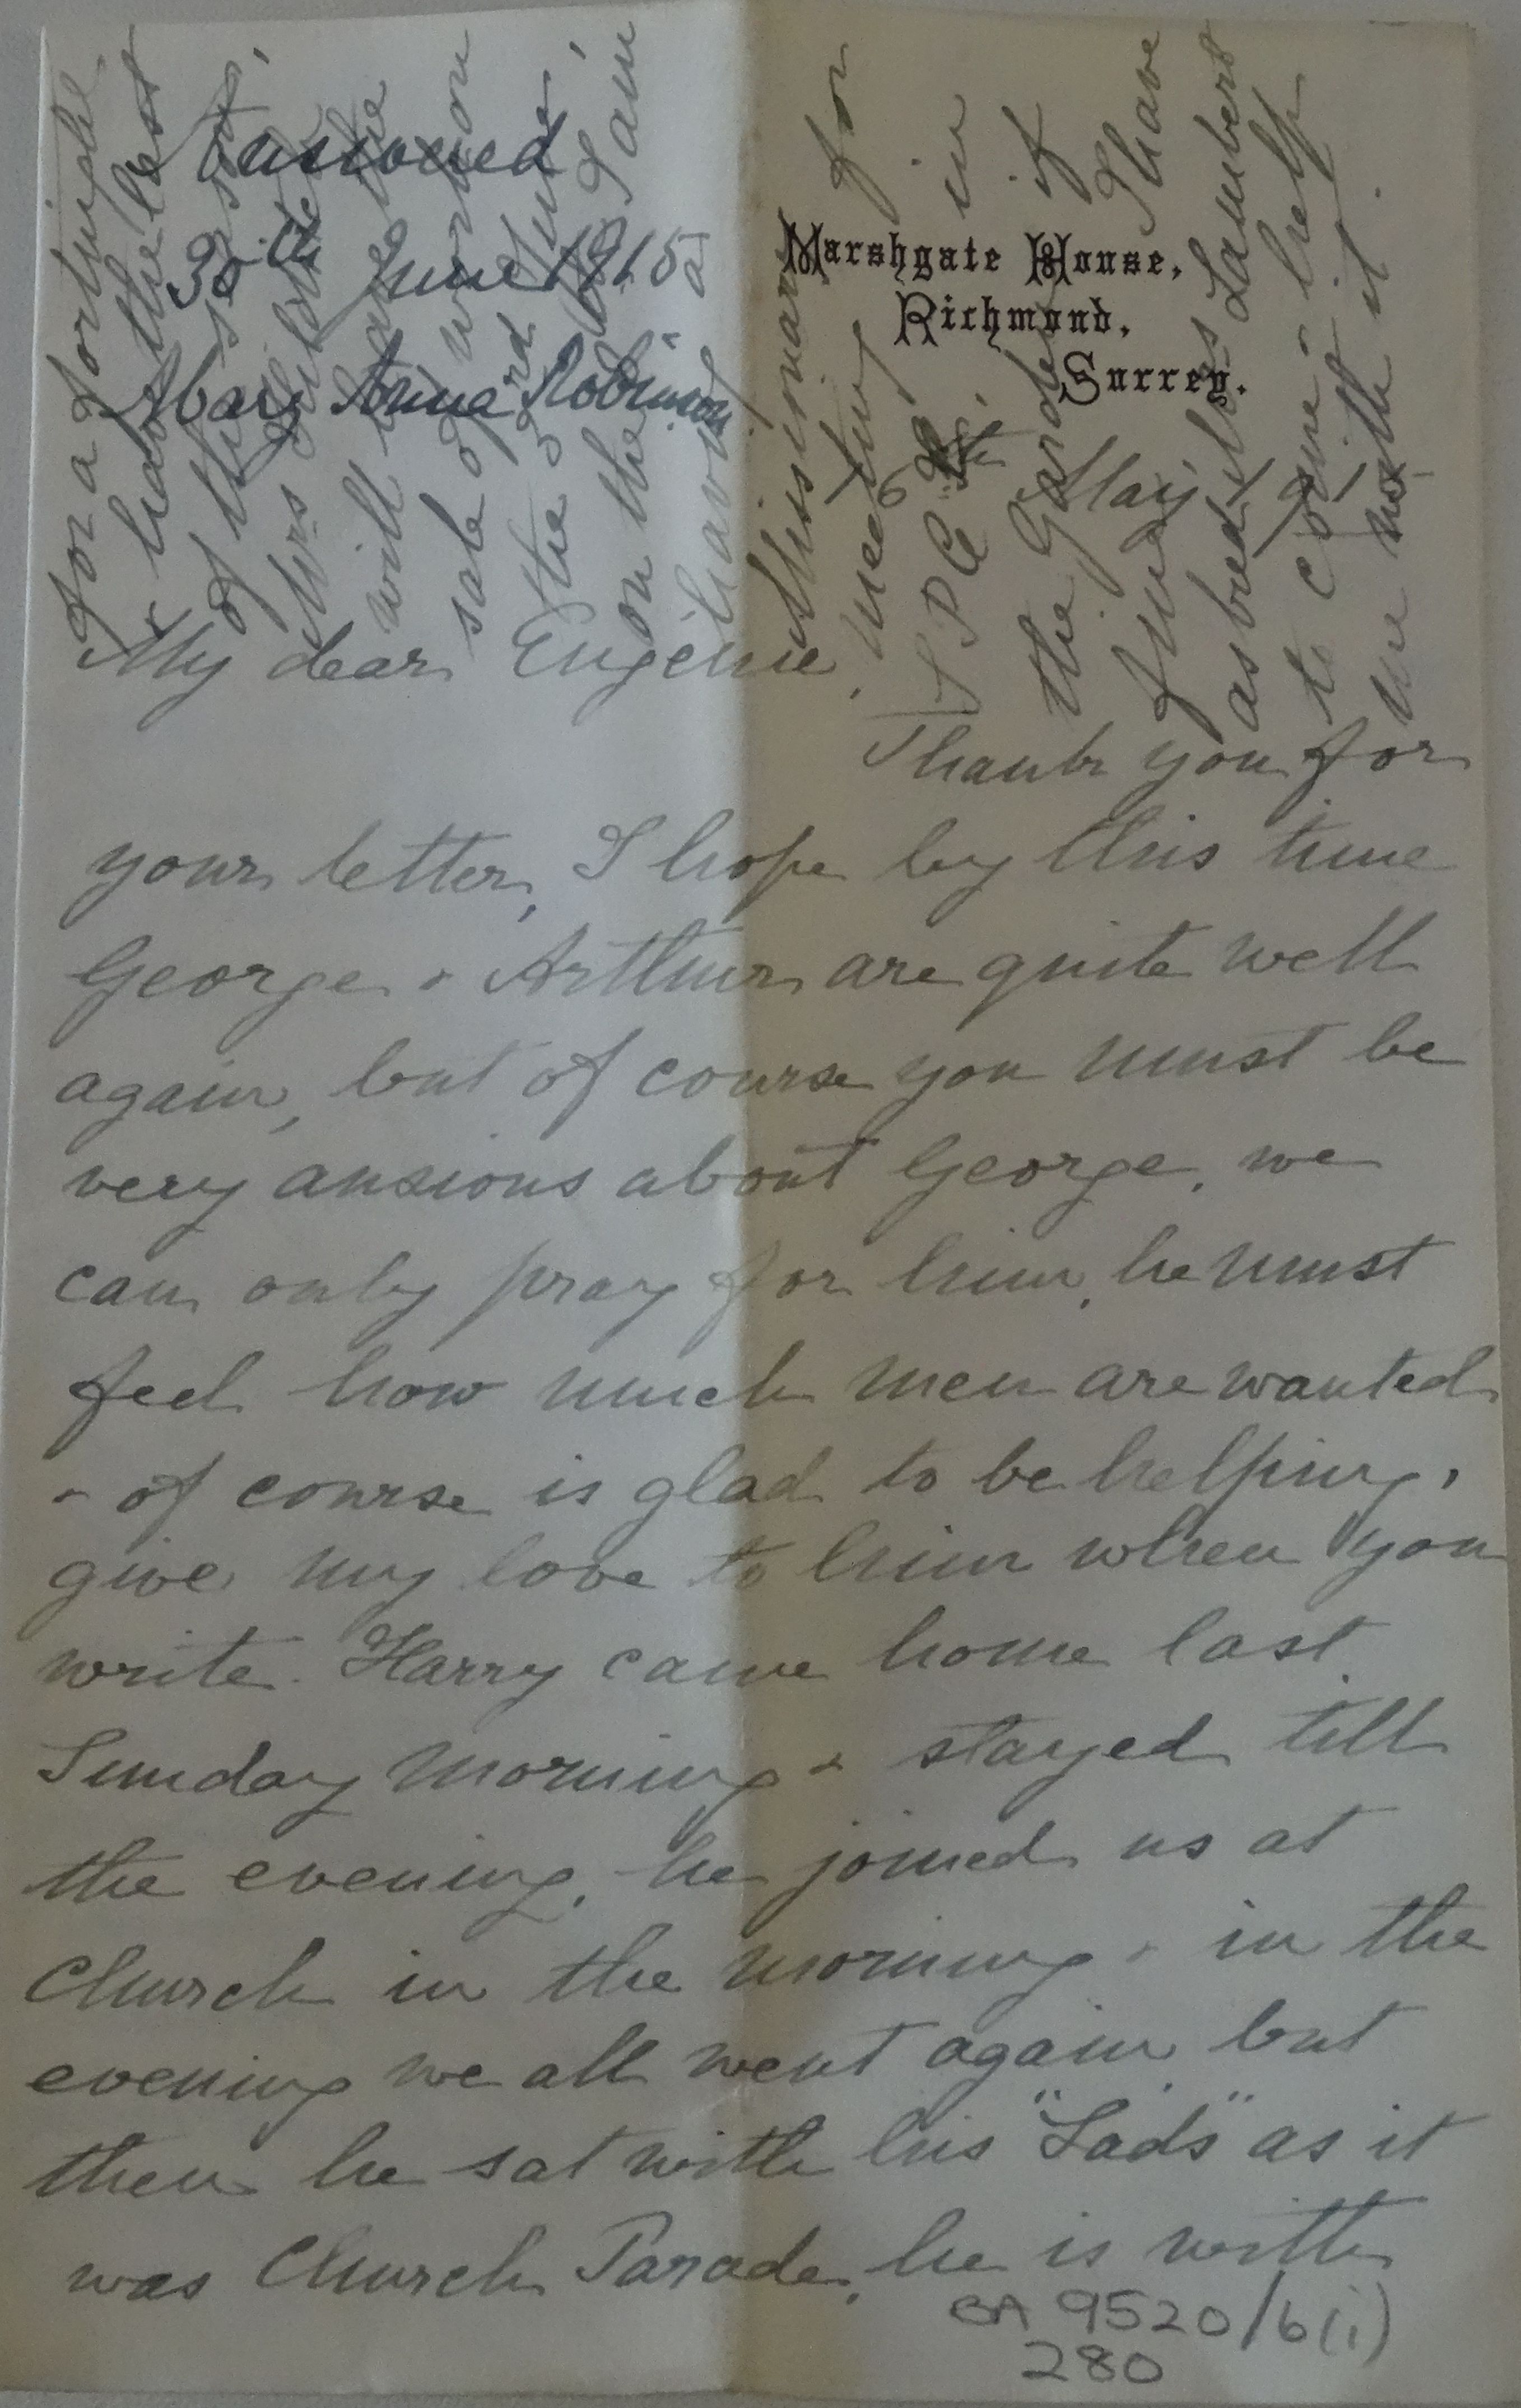 Answered
30th June 1915
Mary Anna Robinson
Marshgate House,
Richmond,
Surrey.
May
My dear Eugénie,
Thank you for
your letter, I hope by this time
George & Arthur are quite well
again, but of course you must be
very anxious about George, we
can only pray for him, he must
feel how much men are wanted
& of course is glad to be helping,
give my love to him when you
write. Harry came home last
Sunday morning & stayed till
the evening, he joined us at
Church in the morning & in the
evening we all went again, but
then he sat with his "Lads" as it
was Church Parade, he is with
for a fortnight.
I have
of the
Mrs
will
sale of work on
the 3rd June
on the I am
having a
this
meeting for
S P G in
the Garden if
fine, I have
asked Lambert
to come & help
me with it.
BA 9520/6(i)
280